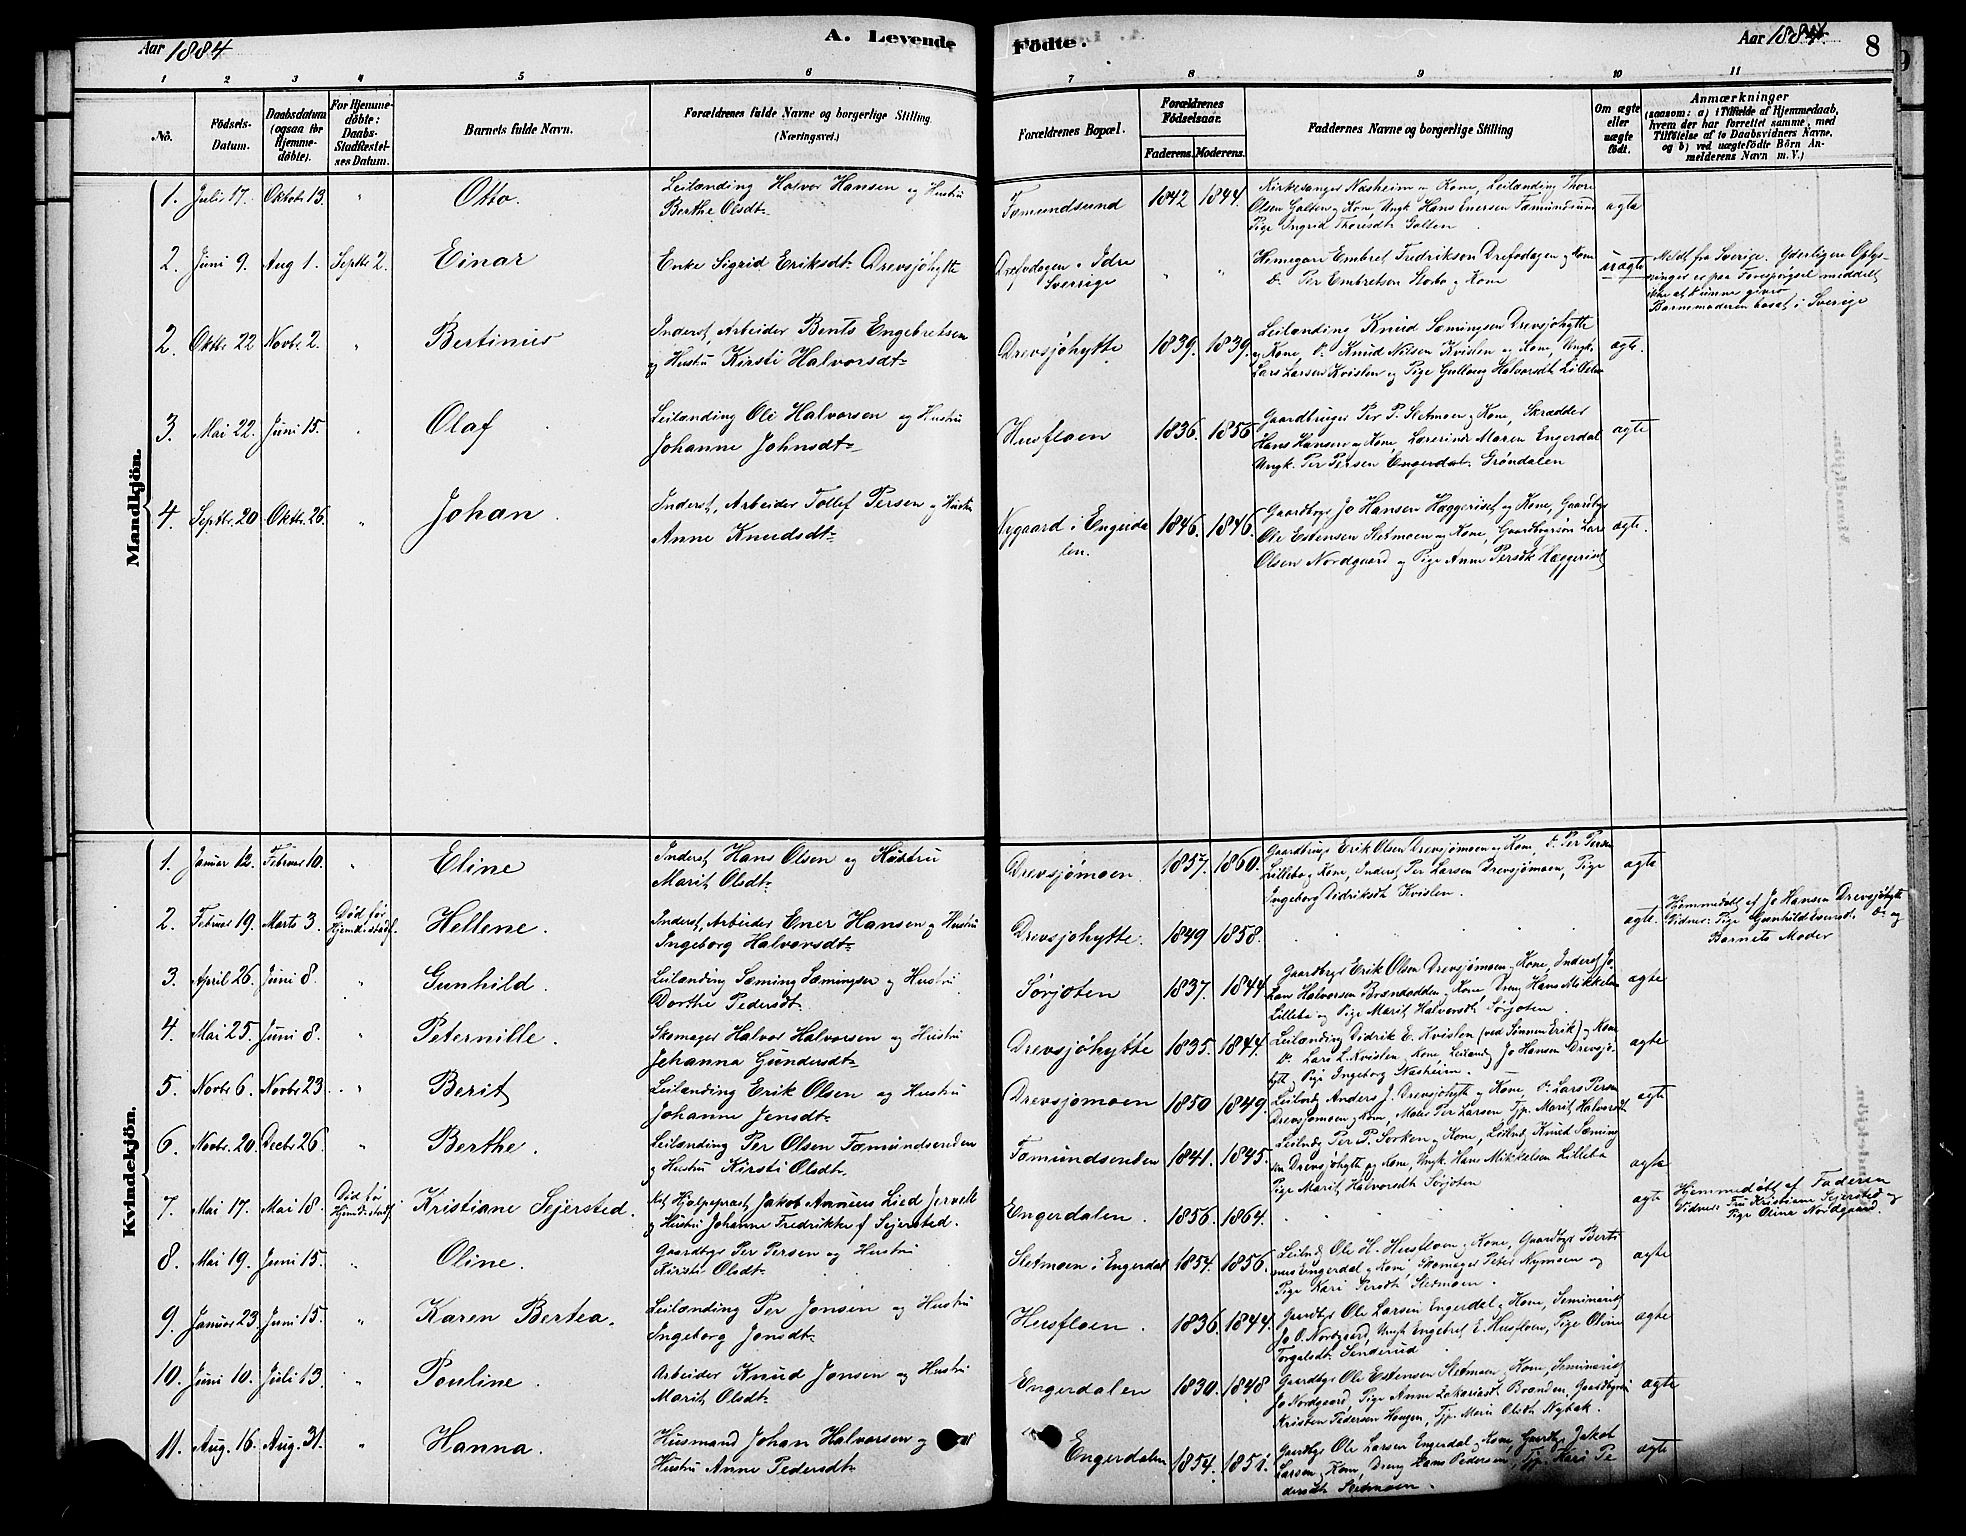 Aar 1884
A. Levende Födte.
Aar 1884.
8
1 2 3 4 5 6 7 8 9 10 11
No.
Födsels-Datum.
Daabsdatum (ogsaa for Hjemme-döbte).
For Hjemme-döbte: Daabs-Stadfæstel-ses Datum.
Barnets fulde Navn.
Forældrenes fulde Navne og borgerlige Stilling (Næringsvei.)
Forældrenes Bopæl.
Forældrenes Födselsaar.
Faderens. Moderens.
Faddernes Navne og borgerlige Stilling
Om ægte eller uægte födt.
Anmærkninger
(saasom: a) i Tilfælde af Hjemmedaab, hvem der har forrettet samme, med Tilföielse af to Daabsvidners Navne, og b) ved uægtefödte Börn An-melderens Navn m. V.)
Mandkjön.
1. Juli 17. Oktob. 13. " Otto. Leilænding Halvor Hansen og Hustru
Berthe Olsdt. Fæmundsund 1842 1844. Kirkesanger Næsheim og Kone, Leilænding Thore
Olsen Galten og Kone, Ungk. Hans Enersen Fæmundsund
Pige Ingrid Thoresdt. Galten. ægte
2. Juni 9. Aug 1. Septbr 2. Einar Enke Sigrid Eriksdt. Drevsjöhytte
Drefsdagen i Idre Sverrige " " Hemegare Embret Fredrikson Drefsdagen og Kone
Do. Per Embretsen Storbo og Kone uægte
Meldt fra Sverige. Yderligere Oplys-
ninger er paa Forespörgsel meddelt
ikke at kunne gives
Barnemoderen bosat i Sverige
2. Oktbr. 22 Novbr 2. " Bertinus Inderst, Arbeider Bents Engebretsen
og Hustru Kirsti Halvorsdt. Drevsjöhytte 1839. 1839. Leilænding Knud Sæmingsen Drevsjöhytte
og Kone, Do. Knud Nilsen Kvislen og Kone, Ungk.
Lars Larsen Kvislen og Pige Gullaug Halvorsdt. ægte.
3. Mai 22. Juni 15. " Olaf Leilænding Ole Halvorsen og Hustru
Johanne Johnsdt. Husfloen 1836. 1856 Gaardbruger Per P. Sletmoen og Kone, Skrædder
Hans Hansen og Kone, Lærerinde Maren Engerdal
Ungk. Per Persen Engerdal. Gröndalen ægte
4. Septbr. 20. Oktbr. 26. " Johan. Inderst, Arbeider Tollef Persen og Hustru
Anne Knudsdt. Nygaard i Engerda-
len. 1846. 1846. Gaardbrgr Jo Hansen Hæggeriset og Kone, Gaardbrgr
Ole Estensen Sletmoen og Kone, Gaardbrgrsön Lars
Olsen Nordgaard og Pige Anne Persdt. Hæggeriset ægte.
Kvindekjön.
1. Januar 12. Februar 10. " Eline Inderst Hans Olsen og Hustru
Marit Olsdt. Drevsjömoen. 1857. 1860. Gaardbruger Erik Olsen Drevsjömoen og Kone, Do. Per Persen
Lillebo og Kone, Inderst Per Larsen Drevsjömoen, Pige
Ingeborg Didriksdt. Kvislen. ægte
2. Februar 19. Marts 3. Död för Hjemd. stadf. Hellene. Inderst, Arbeider Ener Hansen og Hustru
Ingeborg Halvorsdt. Drevsjöhytte. 1849 1858. ægte. Hjemmedöbt af Jo Hansen Drevsjöhytte
Vidner: Pige Gunhild Enersdt. Do. og
Barnets Moder
3. April 26. Juni 8. " Gunhild. Leilænding Sæming Sæmingsen og Hustru
Dorthe Pedersdt. Sörjoten 1837. 1844. Gaardbrgr Erik Olsen Drevsjömoen og Kone, Inderst Jo-
han Halvorsen Brændodden og Kone, Dreng Hans Mikkelsen
Lillebo og Pige Marit Halvorsdt. Sörjoten. ægte
4. Mai 25. Juni 8. " Peternille. Skomager Halvor Halvorsen og Hustru
Johanna Gundersdt. Drevsjöhytte 1835. 1844. Leilænding Didrik E. Kvislen (ved Sönnen Erik) og Kone
Do. Lars L. Kvislen og Kone, Leilændg. Jo Hansen Drevsjö-
hytt., Pige Ingeborg Næsheim. ægte
5. Novbr 6. Novbr 23. " Berit Leilænding Erik Olsen og Hustru
Johanne Jensdt. Drevsjömoen 1850 1849. Leilændg. Anders J. Drevsjöhytte og Kone, Do. Lars Persen
Drevsjömoen og Kone, Per Larsen Tjp. Marit Halvorsdt. ægte
6. Novbr. 20. Decbr 26. " Berthe. Leilænding Per Olsen Fæmundsenden
og Hustru Kirsti Olsdt. Fæmundsenden 1841. 1845. Leilndg Per P. Sorken og Kone, Leilndg Knud Sæming-
sen Drevsjöhytte og Kone, Ungk. Hans Mikkelsen Lillebo
Pige Marit Halvorsdt. Sörjoten ægte
7. Mai 17. Mai 18. Död för Hjemd. stadf. Kristiane Sejersted. Hjælpeprest Jakob Annæus Lied Jervell
og Hustru Johanne Fredrikke f. Sejersted. Engerdalen. 1856. 1864. ægte Hjemmedöbt af Faderen
Vidner: Fru Kristiane Sejersted og
Pige Oline Nordgaard.
8. Mai 19. Juni 15. " Oline. Gaardbrgr Per Persen og Hustru
Kirsti Olsdt. Sletmoen i Engerdal 1854. 1856. Leilndg Ole H. Husfloen og Kone, Gaardbrgr Berti-
nus Engerdal og Kone Skomager Peter Nymoen og
Pige Kari Persdt. Sletmoen. ægte
9. Januar 23. Juni 15. " Karen Bertea. Leilænding Per Jonsen og Hustru
Ingeborg Jonsdt. Husfloen. 1836. 1844. Gaardbrgr Ole Larsen Engerdal og Kone, Seminarist
Jo O. Nordgaard, Ungk. Engebret E. Husfloen, Pige Oline
Torgalsdt. Sönderud. ægte
10. Juni 10. Juli 13. " Pouline. Arbeider Knud Jonsen og Hustru
Marit Olsdt. Engerdalen 1830. 1848 Gaardbrgr Ole Estensen Sletmoen og Kone, Seminarist
Jo Nordgaard, Pige Anne Zakariasdt. Branden, Gaardbrgrsön
Kristen Pedersen Haugen, Tjp. Mari Olsdt. Nybak. ægte
11. Aug. 16. Aug. 31. " Hanna. Husmand Johan Halvorsen og
Hustru Anne Pedersdt. Engerdalen 1854. 1851. Gaardbrgr Ole Larsen Engerdal og Kone, Gaardbgr Jakob
Larsen og Kone, Dreng Hans Pedersen, Tjp. Kari Pe-
dersdt. Sletmoen. ægte